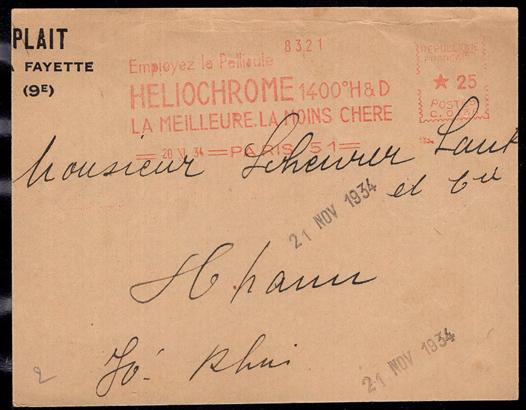 PLAIT
FAYETTE
(9E)
8321
Employez la Pellicule
HELIOCHROME 1400°H&D
LA MEILLEURE. LA MOINS CHERE
20 XI 34 PARIS 51
REPUBLIQUE
FRANÇAISE
★ 25
POSTES
Monsieur Scheurer Lauth
et Cie
21 NOV 1934
Thann
Ht Rhin
21 NOV 1934
2